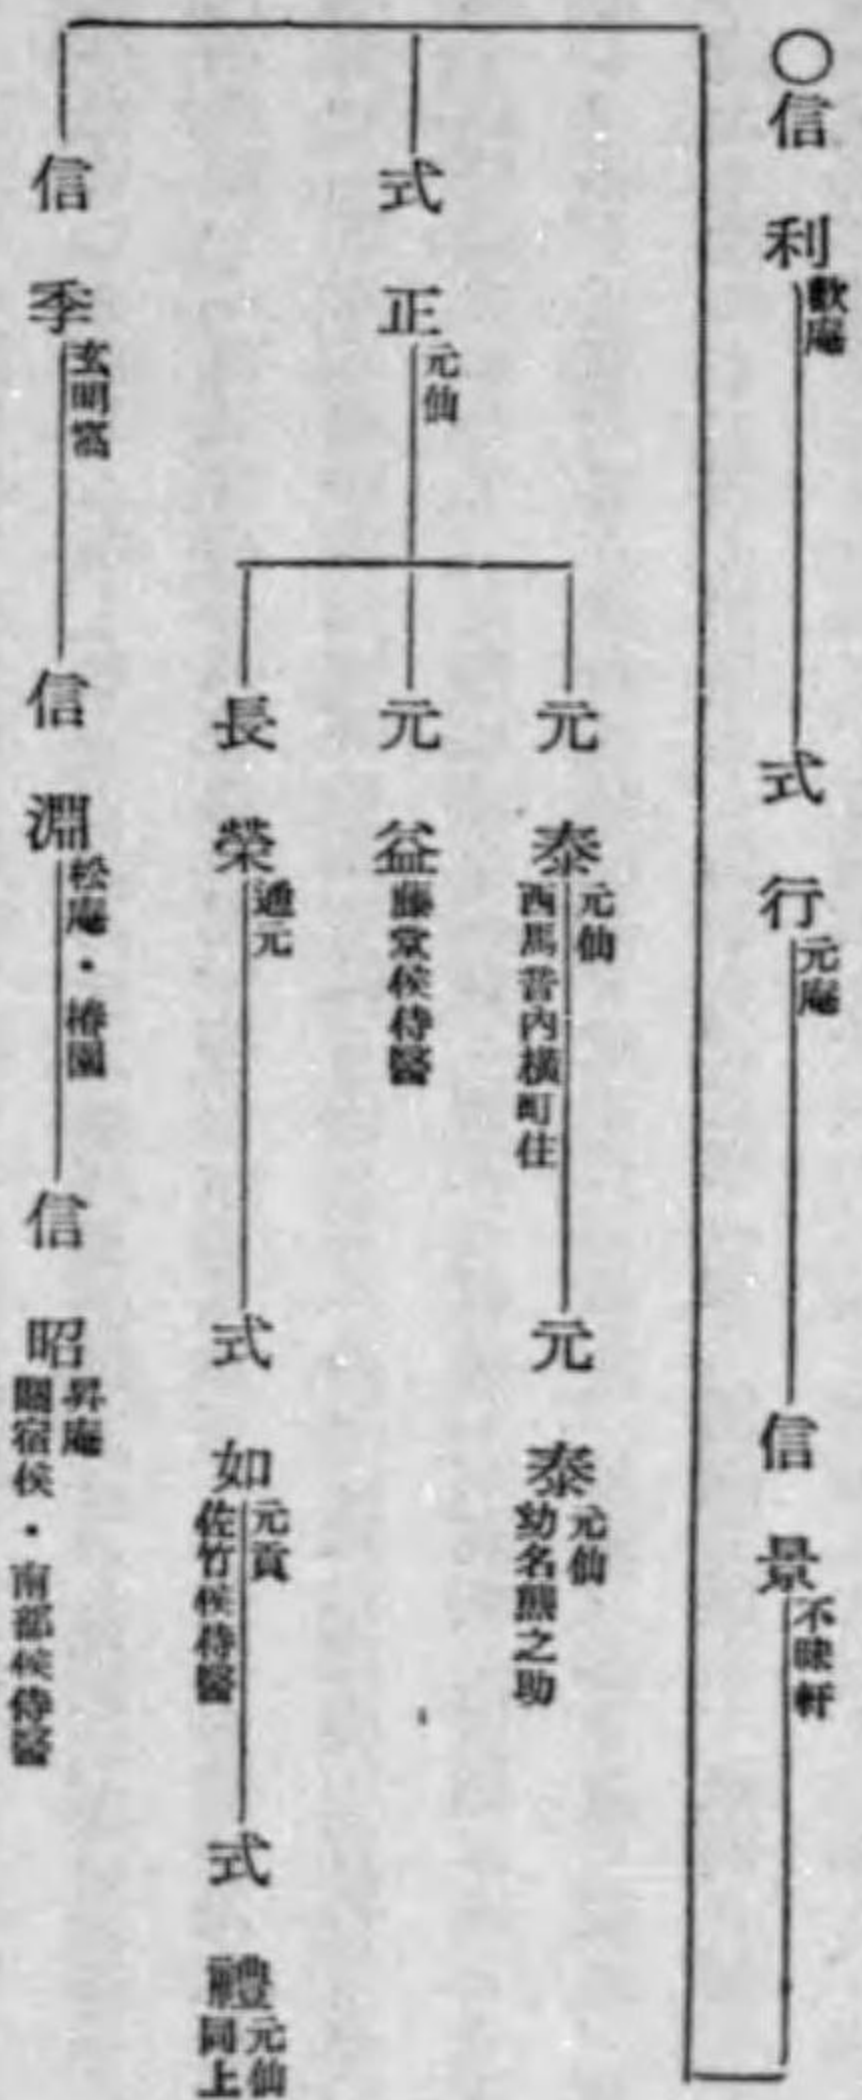 〇信利 歡庵
式行 元庵
信景 不昧軒
式正 元仙
元泰 元仙
西馬音内横町住
元泰 元仙
幼名熊之助
元益 藤堂侯侍醫
長榮 通元
式如 元貢
佐竹侯侍醫
式禮 元仙
同上
信季 玄明窩
信淵 松庵・椿園
信昭 昇庵
關宿侯・南部侯侍醫